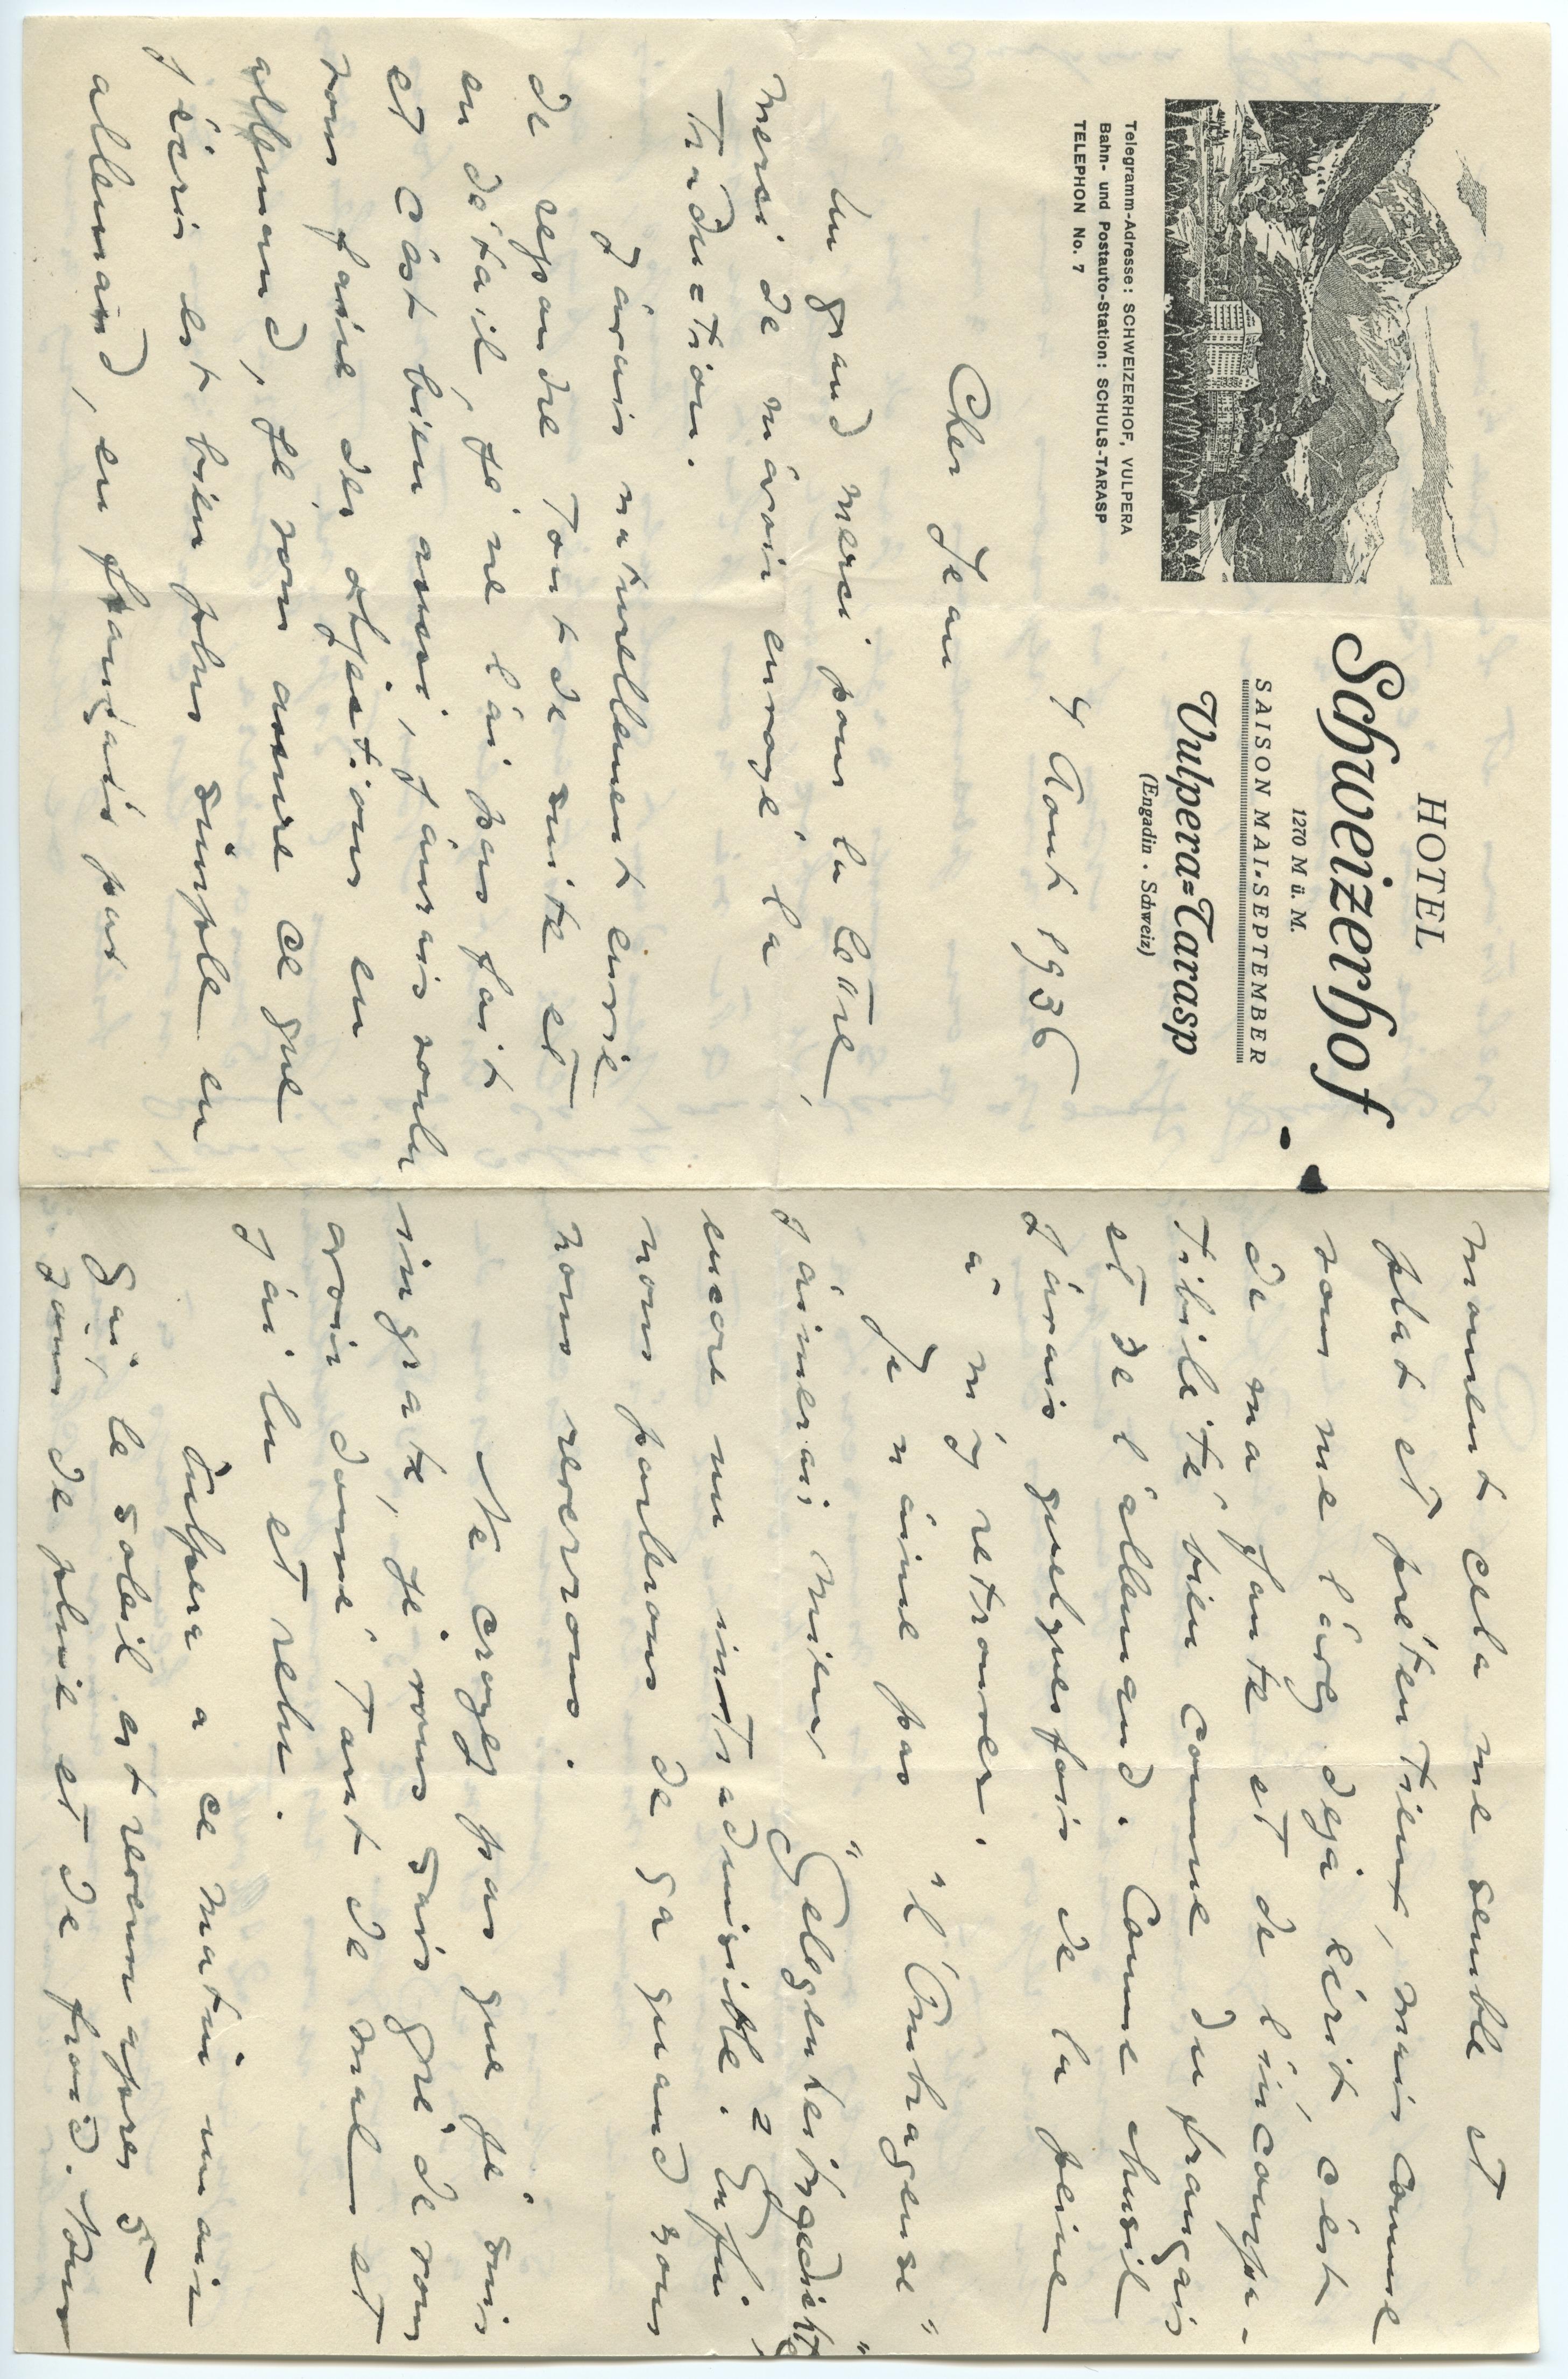 HOTEL
Schweizerhof
1270 M ü. M.
SAISON MAI-SEPTEMBER
Vulpera-Tarasp
(Engadin . Schweiz)
Telegramm-Adresse: SCHWEIZERHOF, VULPERA
Bahn- und Postauto-Station: SCHULS-TARASP
TELEPHON No. 7
4 Aout 1936
Cher Jean
Un grand merci pour la lettre,
merci de m'avoir envoyé la
traduction.
J'avais naturellement envie
de repondre tout de suite et
en détail, je ne l'ai pas fait
et c'est bien aussi, j'aurais voulu
vous faire des objections en
allemand, je vous assure ce que
j'écris est bien plus simple en
allemand, en français par
moment cela me semble et
plat et prétentieux, mais comme
vous me l'avez dejà écrit, c'est
de ma faute et de l'incompa-
tibilité bien connue du français
et de l'allemand. Comme Husil
j'avais quelques fois de la peine
à m'y retrouver.
Je n'aime pas "l'Ombrageuse"
j'aimerais mieux "Gelegenheitsgedichte"
encore un intraduisible. Enfin
nous parlerons de ça quand nous
nous reverrons.
Ne croyez pas que je suis
ingrate, je vous sais gré de vous
avoir donné tant de mal et
j'ai lu et relu.
Vulpera a ce matin un air
gai, le soleil est revenu apres 5
jours de pluie et de froid. Nous